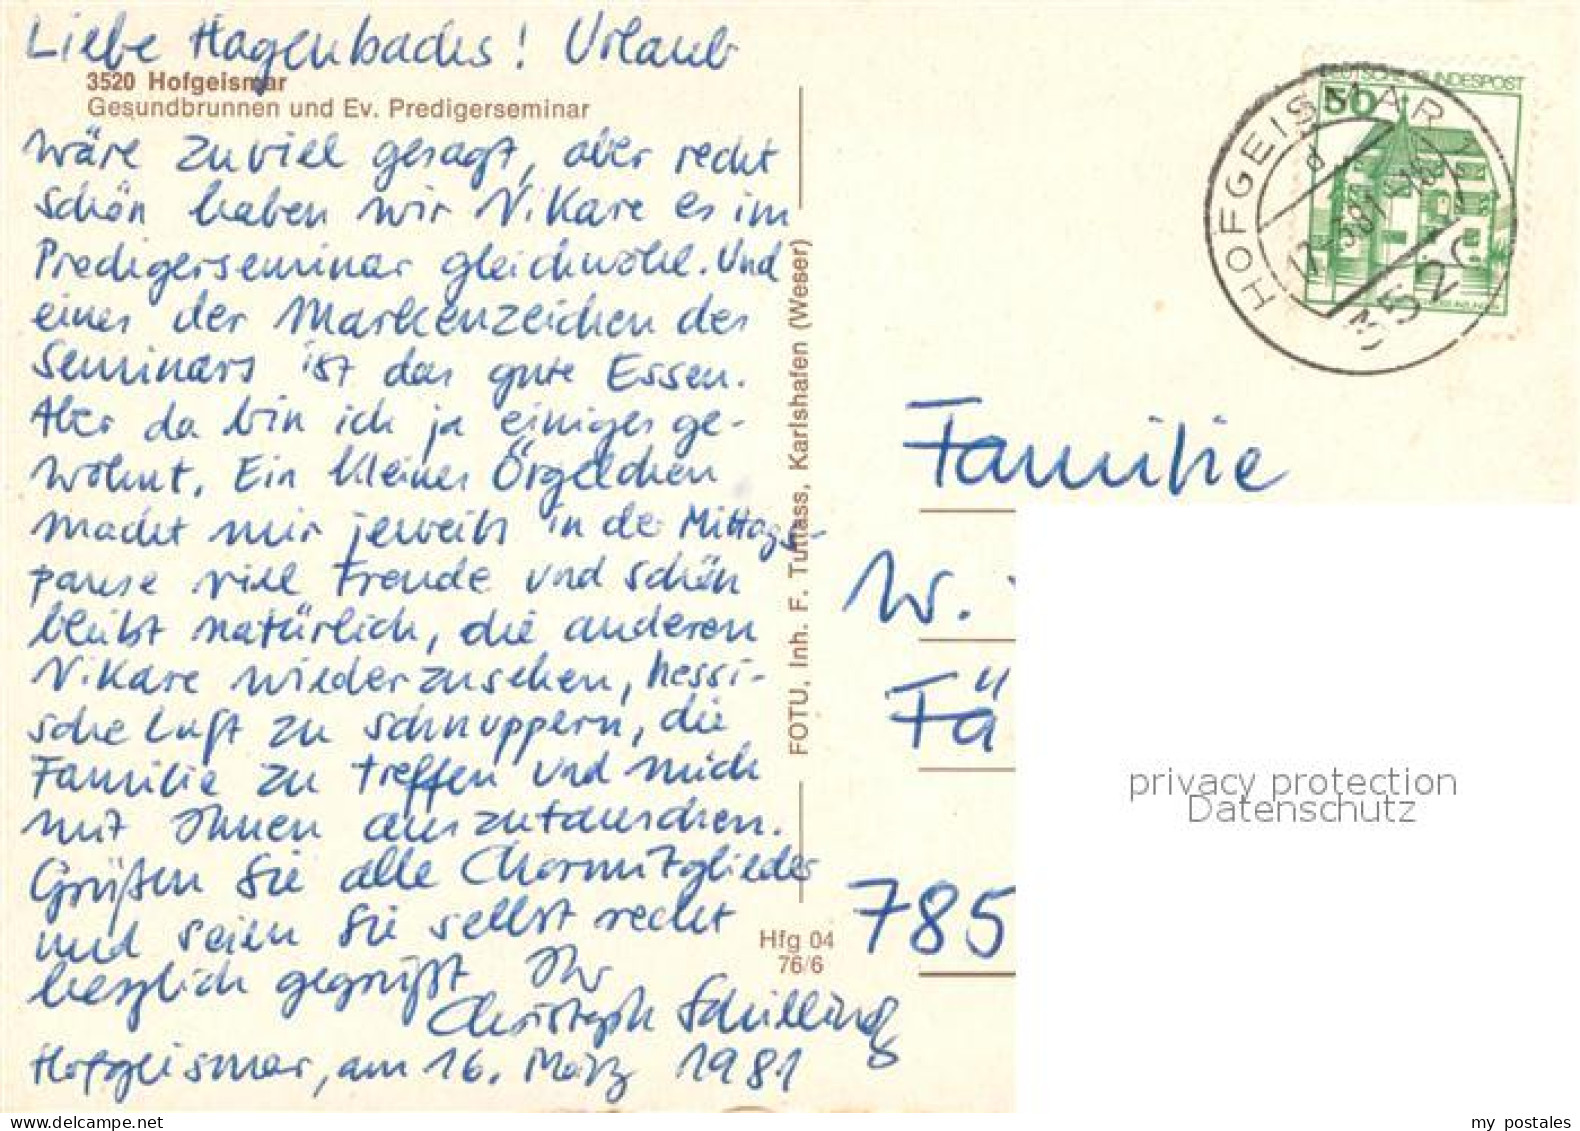 Liebe Hagenbachs! Urlaub
3520 Hofgeismar
Gesundbrunnen und Ev. Predigerseminar
wäre zuviel gesagt, aber recht
schön haben wir Vikare es im
Predigerseminar gleichwohl. Und
eines der Markenzeichen des
Seminars ist das gute Essen.
Aber da bin ich ja einiges ge-
wöhnt. Ein kleines Örgelchen
macht mir jeweils in der Mittags-
pause viel Freude und schön
bleibt natürlich, die anderen
Vikare wiederzusehen, hessi-
sche Luft zu schnuppern, die
Familie zu treffen und mich
mit Ihnen auszutauschen.
Grüßen Sie alle Chormitglieder
und seien Sie selbst recht
herzlich gegrüßt Ihr
Christoph Schilling
Hofgeismar, am 16. März 1981
FOTU, Inh. F. Tuttass, Karlshafen (Weser)
Hfg 04
76/6
DEUTSCHE BUNDESPOST
50
HOFGEISMAR
d
3520
Familie
W.
Fä
785
privacy protection
Datenschutz
my postales